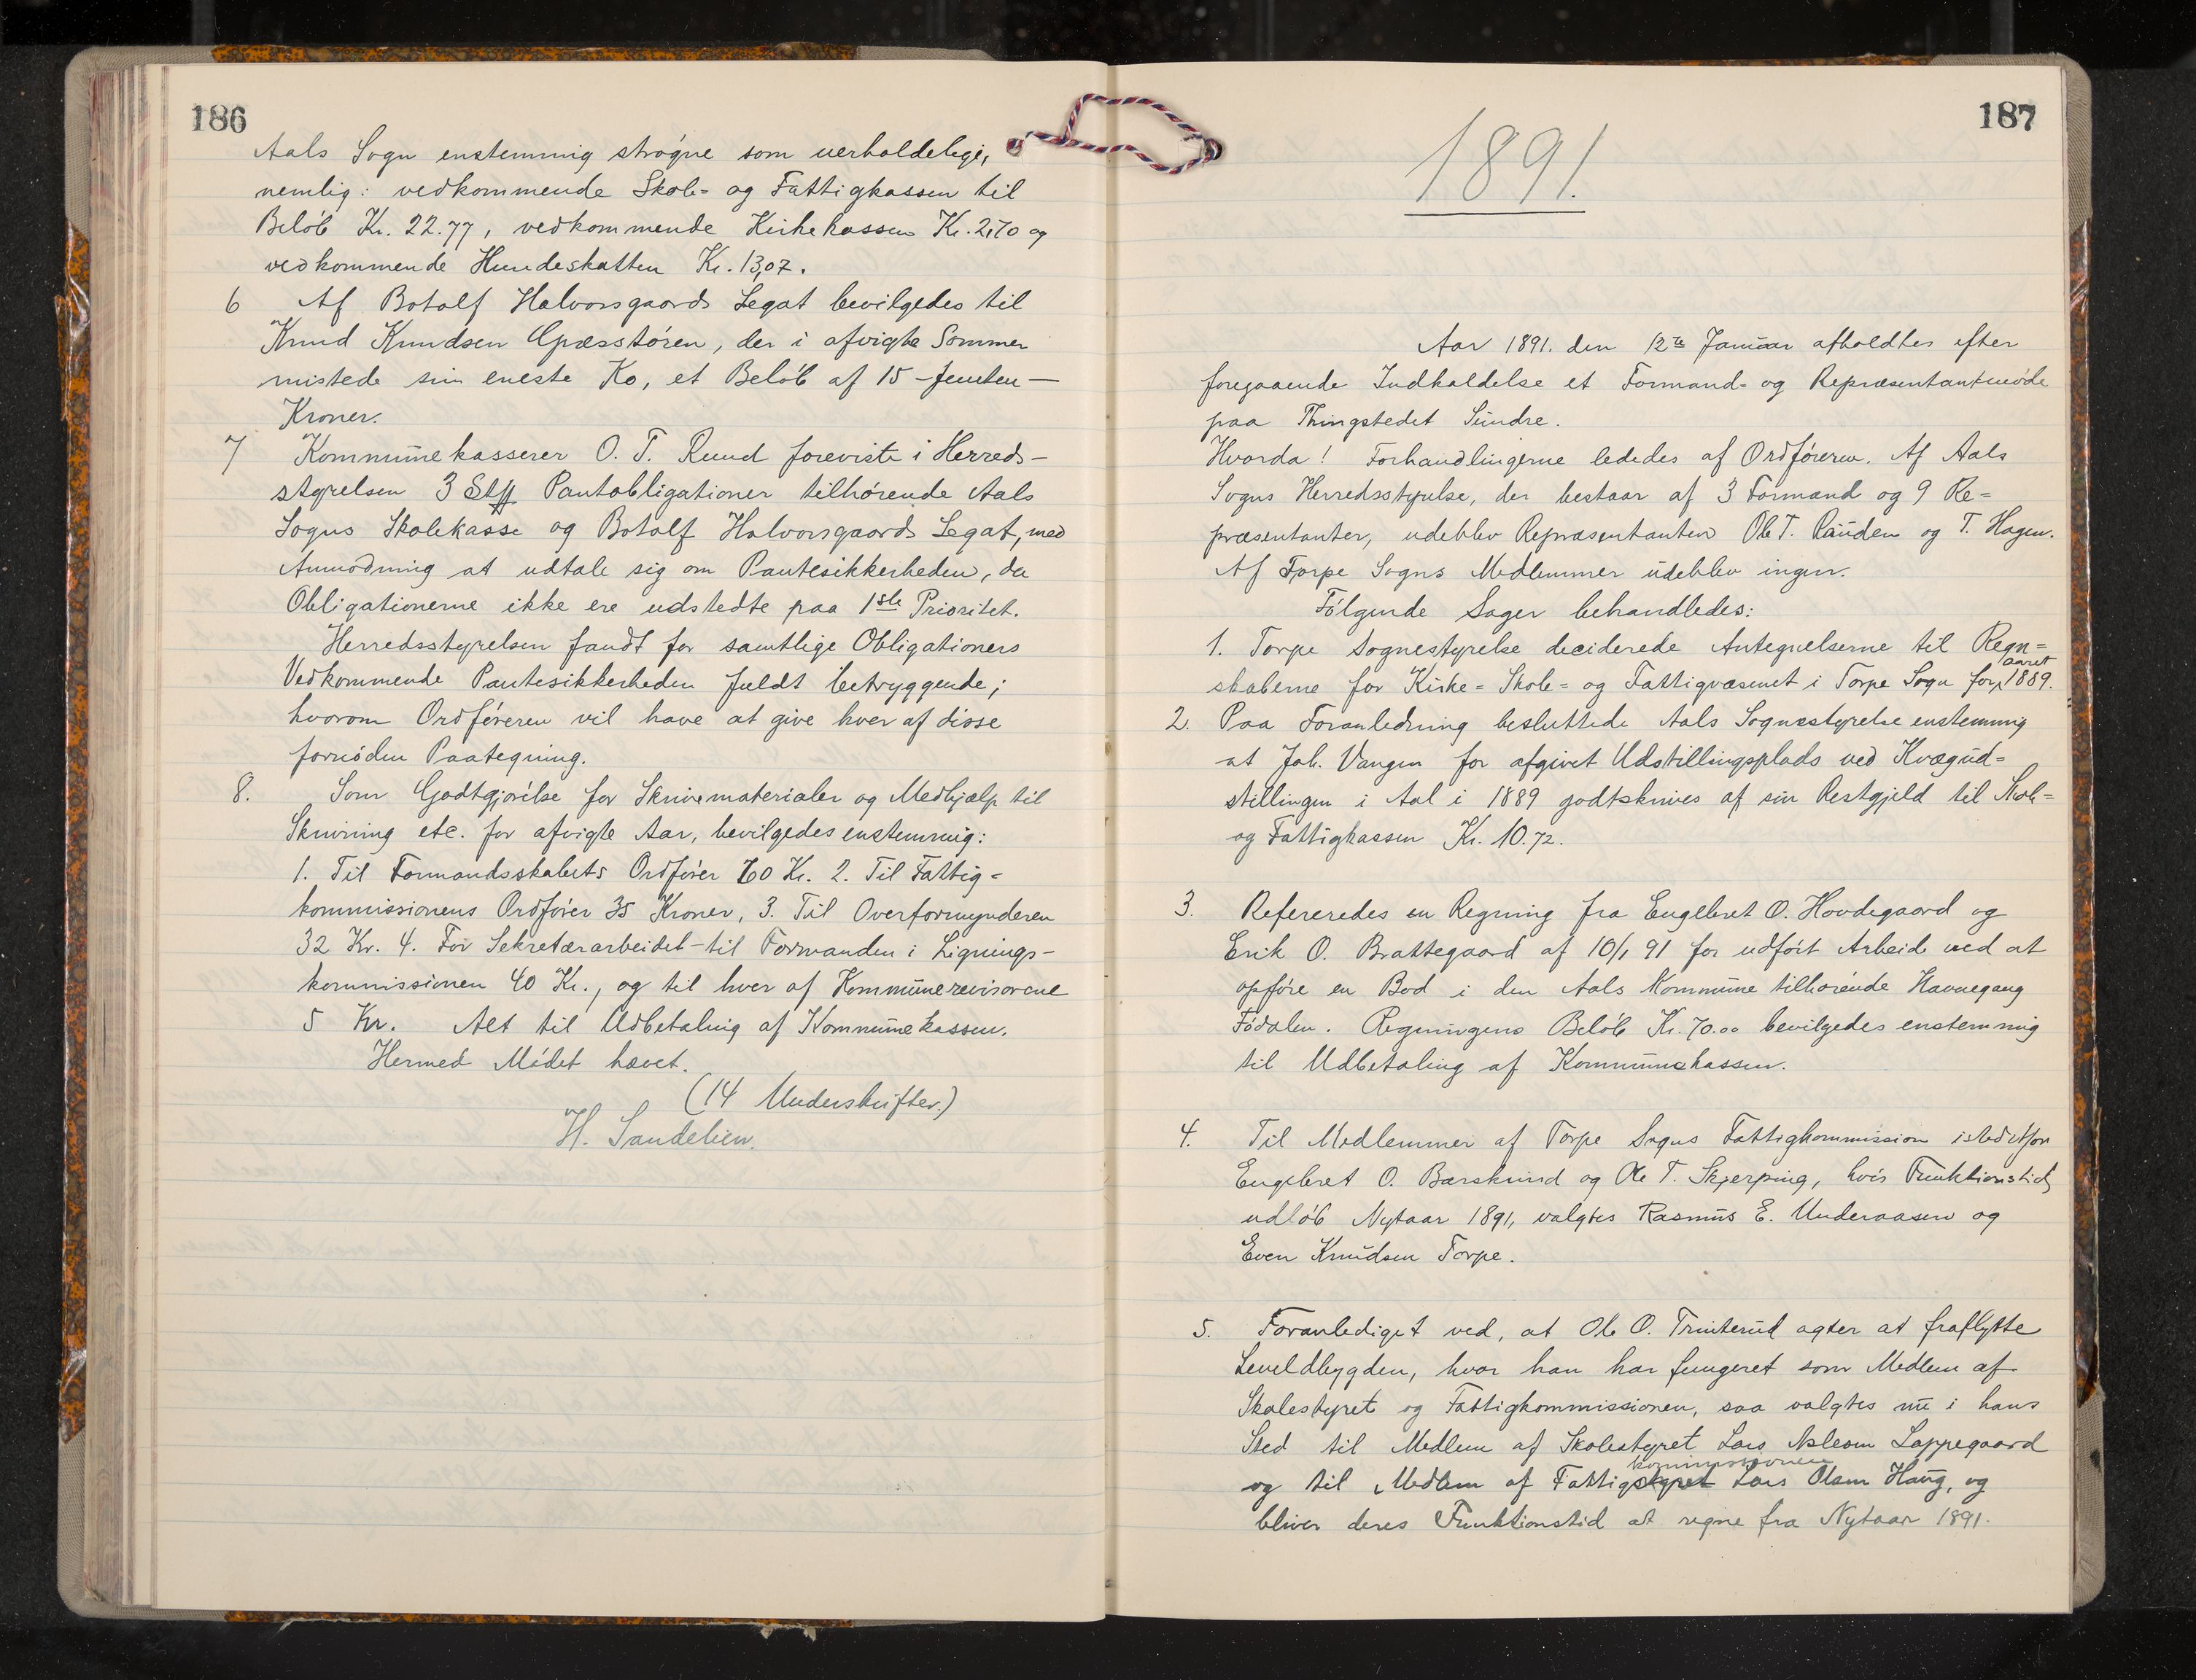 186
Aals Sogn enstemmig strøgne som uerholdelige,
nemlig: vedkommende Skole- og Fattigkassen til
Beløb Kr. 22.77, vedkommende Kirkekassen Kr. 2,70 og
vedkommende Hundeskatten Kr. 13,07.
6 Af Botolf Halvorsgaards Legat bevilgedes til
Knud Knudsen Græsstøren, der i afvigte Sommer
mistede sin eneste Ko, et Beløb af 15 – femten –
Kroner.
7 Kommunekasserer O. T. Ruud foreviste i Herreds-
styrelsen 3 Stk Pantobligationer tilhørende Aals
Sogns Skolekasse og Botolf Halvorsgaards Legat, med
Anmodning at udtale sig om Pantesikkerheden, da
Obligationerne ikke ere udstedte paa 1ste Prioritet.
Herredsstyrelsen fandt for samtlige Obligationers
Vedkommende Pantesikkerheden fuldt betryggende;
hvorom Ordføreren vil have at give hver af disse
fornøden Paategning.
8. Som Godtgjørelse for Skrivematerialer og Medhjælp til
Skrivning etc. for afvigte Aar, bevilgedes enstemmig:
1. Til Formandsskabets Ordfører 60 Kr. 2. Til Fattig-
kommissionens Ordfører 35 Kroner, 3. Til Overformynderen
32 Kr. 4. For Sekretærarbeidet til Formanden i Lignings-
kommissionen 40 Kr., og til hver af Kommunerevisorene
5 Kr. Alt til Udbetaling af Kommunekassen.
Hermed Mødet hævet.
(14 Underskrifter.)
H. Sandelien.
187
1891.
Aar 1891. den 12te Januar afholdtes efter
foregaaende Indkaldelse et Formand- og Repræsentantmøde
paa Thingstedet Sundre.
Hvorda! Forhandlingerne lededes af Ordføreren. Af Aals
Sogns Herredsstyrelse, der bestaar af 3 Formænd og 9 Re-
præsentanter, udeblev Repræsentanten Ole T. Rauden og T. Hagen.
Af Torpe Sogns Medlemmer udeblev ingen.
Følgende Sager behandledes:
1. Torpe Sognestyrelse deciderede Antegnelserne til Regn-
skaberne for Kirke- Skole- og Fattigvæsenet i Torpe Sogn for aaret 1889.
2. Paa Foranledning besluttede Aals Sognestyrelse enstemmig
at Job. Vangen for afgivet Udstillingsplads ved Kvægud-
stillingen i Aal i 1889 godtskrives af sin Restgjeld til Skole-
og Fattigkassen Kr. 10.72.
3. Refereredes en Regning fra Engebret O. Hovdegaard og
Erik O. Brattegaard af 10/1 91 for udført Arbeide ved at
opføre en Bod i den Aals Kommune tilhørende Havnegang
Fødalen. Regningens Beløb Kr. 70.00 bevilgedes enstemmig
til Udbetaling af Kommunekassen.
4. Til Medlemmer af Torpe Sogns Fattigkommission istedetfor
Engebret O. Barskrind og Ole T. Skjerping, hvis Funktionstid
udløb Nytaar 1891, valgtes Rasmus E. Underaasen og
Even Knudsen Torpe.
5. Foranlediget ved, at Ole O. Trinterud agter at fraflytte
Leveldbygden, hvor han har fungeret som Medlem af
Skolestyret og Fattigkommissionen, saa valgtes nu i hans
Sted til Medlem af Skolestyret Lars Aslesen Lappegaard
kommissionen
og til Medlem af Fattigstyret Lars Olsen Haug, og
bliver deres Funktionstid at regne fra Nytaar 1891.